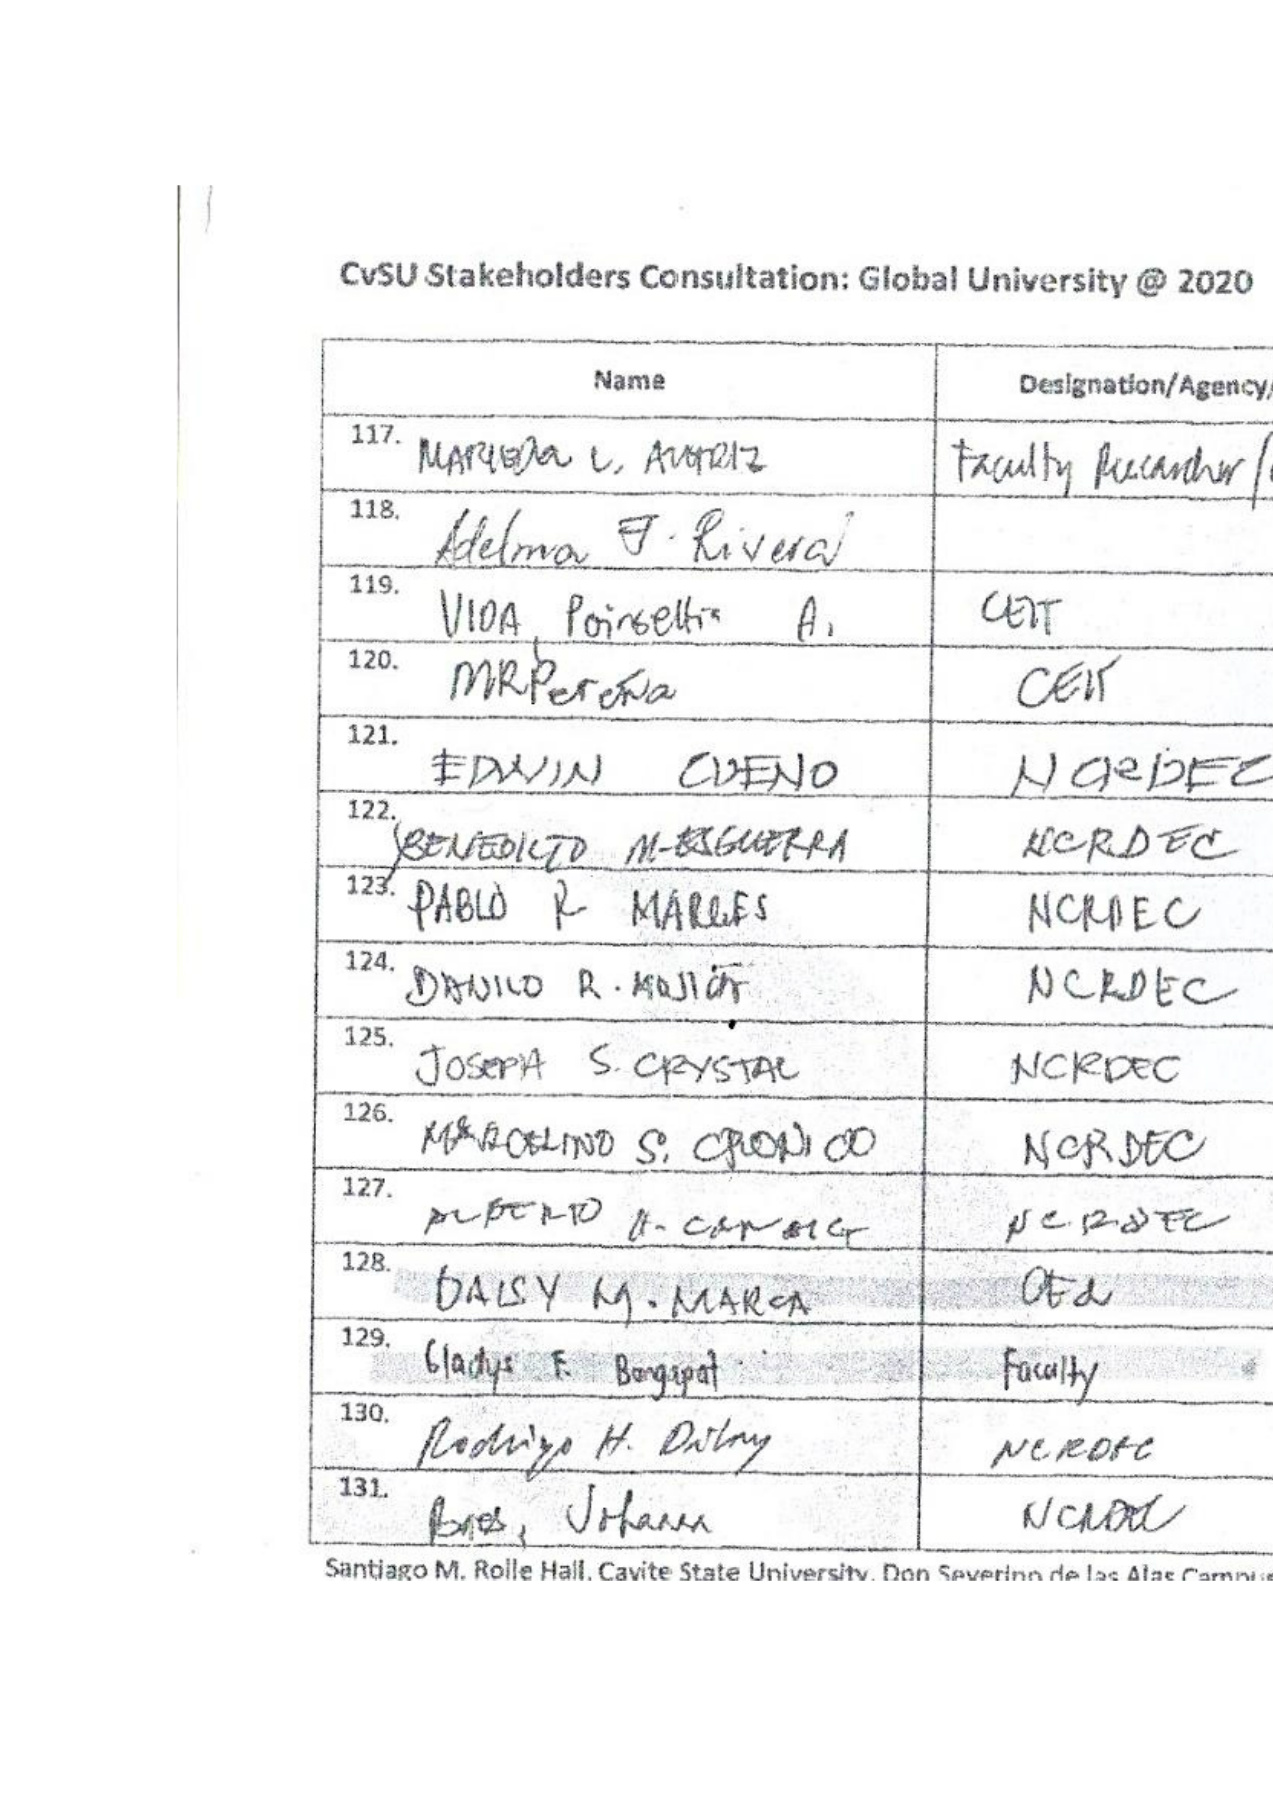 CvSU Stakeholders Consultation: Global University @ 2020
Name Designation/Agency/
117. L. Faculty Researcher /
118. Adelma F. Rivera
119. VIDA, Poinsettia A. CEIT
120. MRPereña CEIT
121. EDWIN CUENO NCRDEC
122. BENEDICTO M. ESGUERRA NCRDEC
123. PABLO R MARGES NCRDEC
124. DANILO R. MOJICA NCRDEC
125. JOSEPH S. CRYSTAL NCRDEC
126. MARCELINO S. CRONICO NCRDEC
127. ALBERTO NCRDEC
128. DAISY M. MARCA
129. Gladys F. Faculty
130. Rodrigo H. NCRDEC
131. Johanna NCRDEC
Santiago M. Rolle Hall, Cavite State University, Don Severino de las Alas Campus